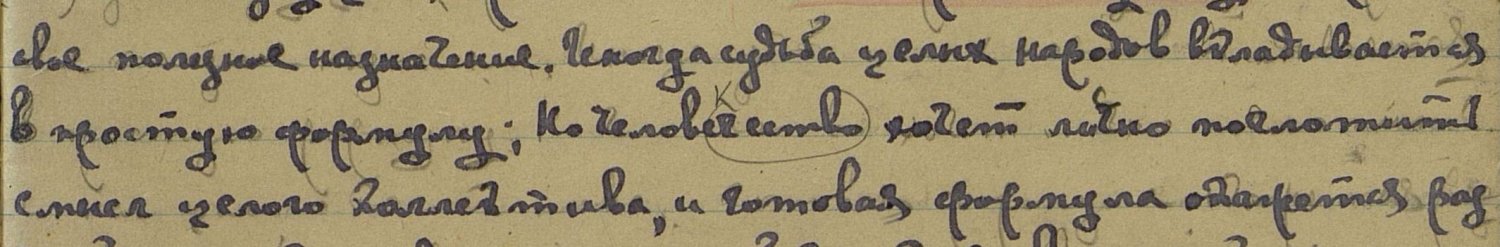 свое полезное назначение. Иногда судьба целых народов вкладывается
в простую формулу; Но человечество хочет лично воплотить
смысл целого коллектива, и готовая формула окажется раз